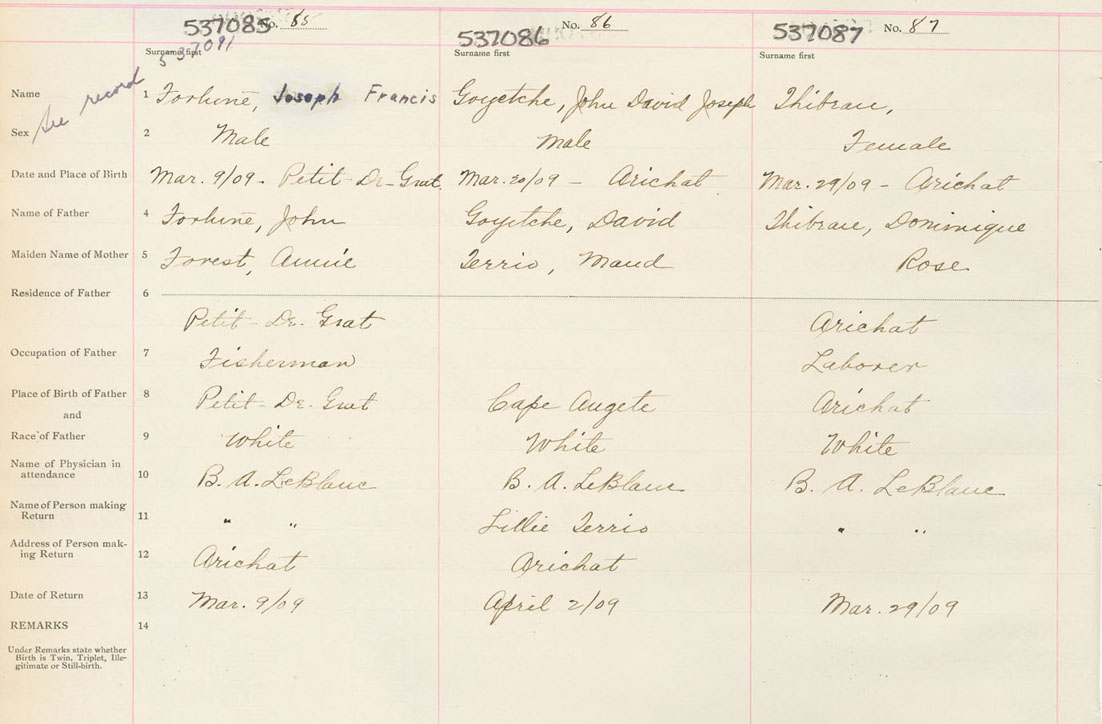 537085 No. 85 537086 No. 86 537087 No. 87
See record 537091
Surname first Surname first Surname first
Name 1 Fortune, Joseph Francis Goyetche, John David Joseph Thibeau,
Sex 2 Male Male Female
Date and Place of Birth Mar. 9/09 - Petit-De-Grat Mar. 20/09 - Arichat Mar. 29/09 - Arichat
Name of Father 4 Fortune, John Goyetche, David Thibeau, Dominique
Maiden Name of Mother 5 Forest, Annie Terrio, Maud Rose
Residence of Father 6
Petit-De-Grat Arichat
Occupation of Father 7 Fisherman Laborer
Place of Birth of Father 8 Petit-De-Grat Cape Augete Arichat
and
Race of Father 9 White White White
Name of Physician in
attendance 10 B. A. LeBlanc B. A. LeBlanc B. A. LeBlanc
Name of Person making
Return 11 " " Lillie Terrio " "
Address of Person mak-
ing Return 12 Arichat Arichat
Date of Return 13 Mar. 9/09 April 2/09 Mar. 29/09
REMARKS 14
Under Remarks state whether
Birth is Twin, Triplet, Ille-
gitimate or Still-birth.